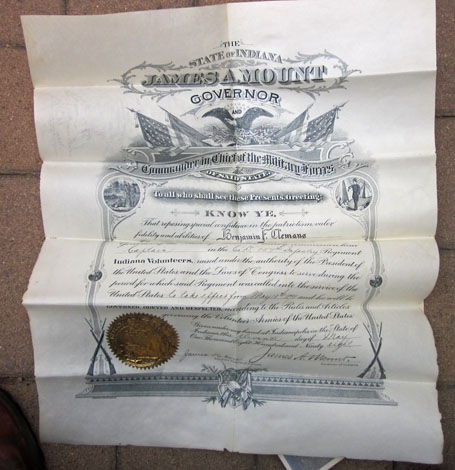 THE
STATE OF INDIANA
JAMES A. MOUNT
GOVERNOR
AND
Commander in Chief of the Military Forces
OF SAID STATE
To all who shall see these Presents, Greeting:
KNOW YE,
That reposing special confidence in the patriotism, valor
fidelity and abilities of Benjamin F. Clemans
Captain in the Infantry Regiment
Indiana Volunteers, raised under the authority of the President of
the United States and the Laws of Congress to serve during the
period for which said Regiment was called into the service of the
United States to take effect from May and he will be
OBEYED AND RESPECTED, according to the Rules and Articles
governing the Volunteer Armies of the United States
at Indianapolis in the State of
day of May
One Thousand Eight Hundred and Ninety eight
James A. Mount